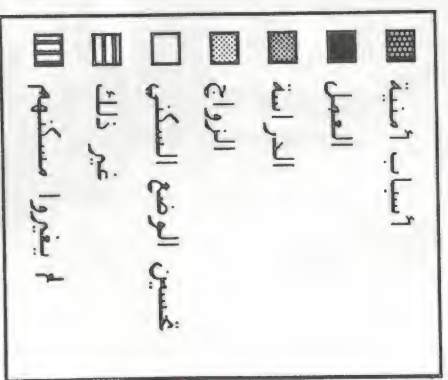 أسباب أمنية
العمل
الدراسة
الزواج
تحسين الوضع السكني
غير ذلك
لم يغيروا مسكنهم